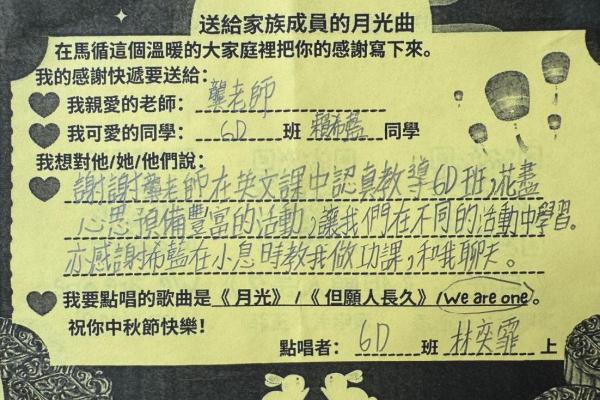 送給家族成員的月光曲
在馬循這個溫暖的大家庭裡把你的感謝寫下來。
我的感謝快遞要送給：
我親愛的老師：龔老師
我可愛的同學：6D班賴希藍同學
我想對他/她/他們說：
謝謝龔老師在英文課中認真教導6D班，花盡
心思預備豐富的活動，讓我們在不同的活動中學習。
亦感謝希藍在小息時教我做功課，和我聊天。
我要點唱的歌曲是《月光》/《但願人長久》/We are one。
祝你中秋節快樂！
點唱者：6D班林奕霏上